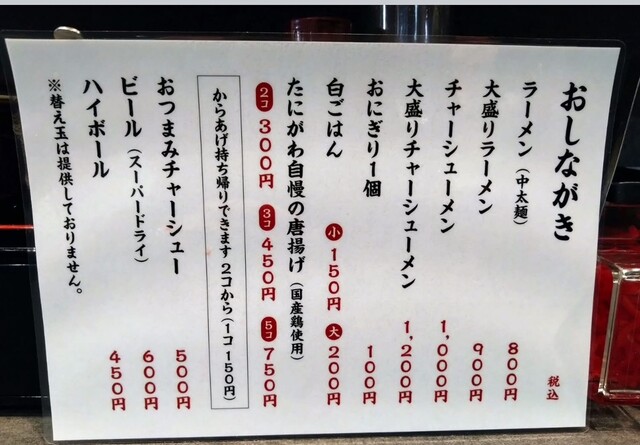 おしながき
税込
ラーメン（中太麺） 800円
大盛りラーメン 900円
チャーシューメン 1,000円
大盛りチャーシューメン 1,200円
おにぎり1個 100円
白ごはん 小 150円 大 200円
たにがわ自慢の唐揚げ（国産鶏使用）
2コ 300円 3コ 450円 5コ 750円
からあげ持ち帰りできます 2コから（1コ 150円）
おつまみチャーシュー 500円
ビール（スーパードライ） 600円
ハイボール 450円
※替え玉は提供しておりません。